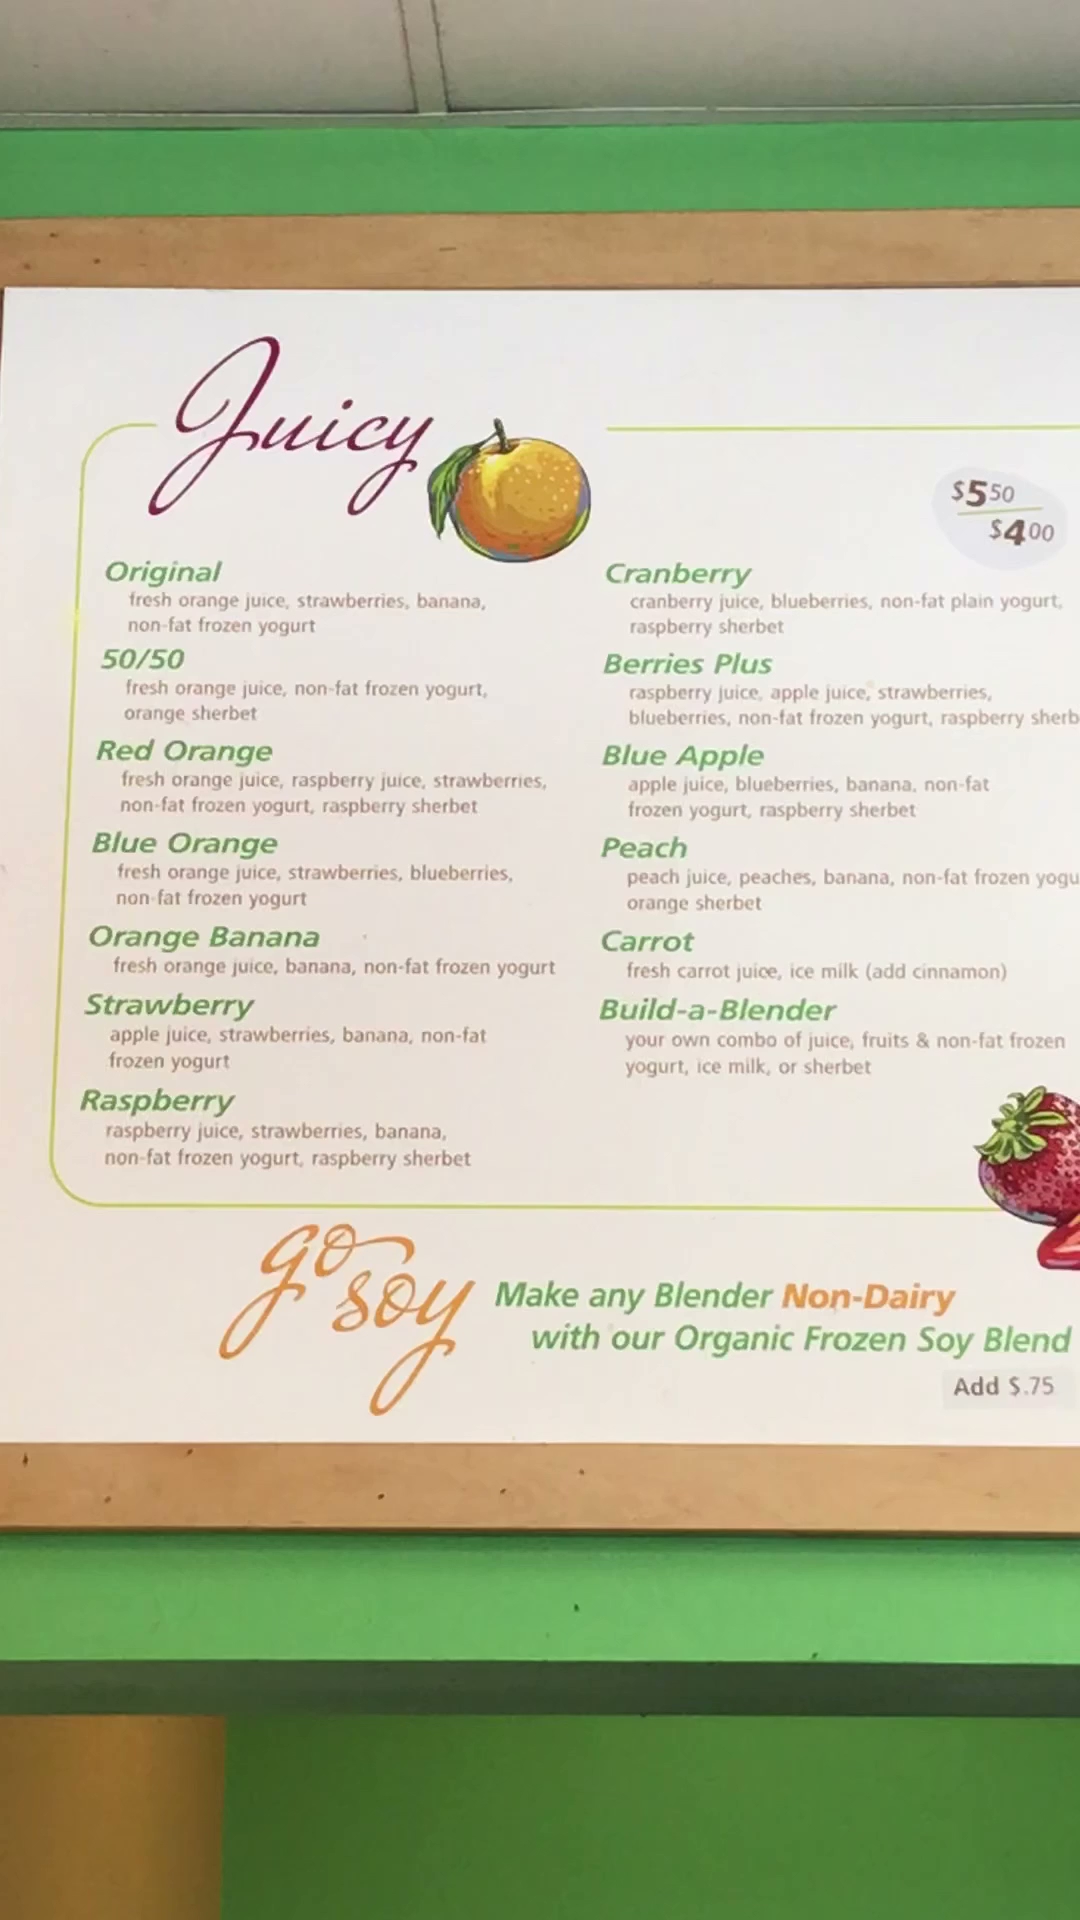 Juicy
$5.50
$4.00
Original
fresh orange juice, strawberries, banana,
non-fat frozen yogurt
50/50
fresh orange juice, non-fat frozen yogurt,
orange sherbet
Red Orange
fresh orange juice, raspberry juice, strawberries,
non-fat frozen yogurt, raspberry sherbet
Blue Orange
fresh orange juice, strawberries, blueberries,
non-fat frozen yogurt
Orange Banana
fresh orange juice, banana, non-fat frozen yogurt
Strawberry
apple juice, strawberries, banana, non-fat
frozen yogurt
Raspberry
raspberry juice, strawberries, banana,
non-fat frozen yogurt, raspberry sherbet
Cranberry
cranberry juice, blueberries, non-fat plain yogurt,
raspberry sherbet
Berries Plus
raspberry juice, apple juice, strawberries,
blueberries, non-fat frozen yogurt, raspberry sherb
Blue Apple
apple juice, blueberries, banana, non-fat
frozen yogurt, raspberry sherbet
Peach
peach juice, peaches, banana, non-fat frozen yogu
orange sherbet
Carrot
fresh carrot juice, ice milk (add cinnamon)
Build-a-Blender
your own combo of juice, fruits & non-fat frozen
yogurt, ice milk, or sherbet
go
soy
Make any Blender Non-Dairy
with our Organic Frozen Soy Blend
Add $.75